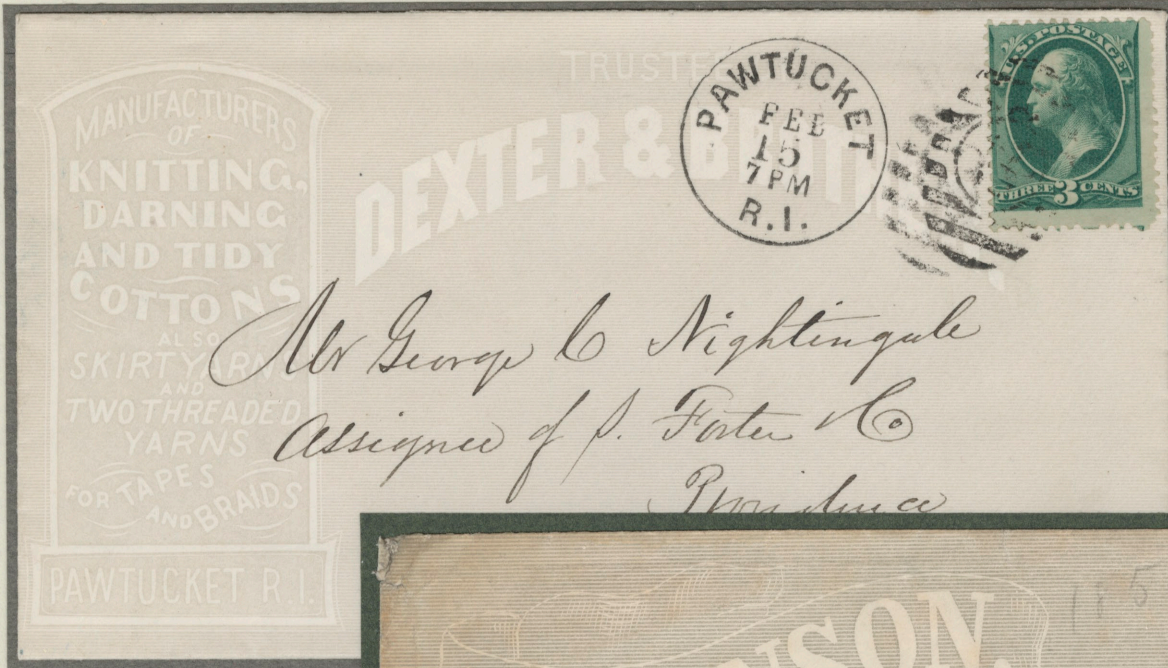 MANUFACTURERS
OF
KNITTING,
DARNING
AND TIDY
COTTONS
ALSO
SKIRT YARNS
AND
TWO THREADED
YARNS
FOR TAPES
AND BRAIDS
PAWTUCKET R.I.
DEXTER &
PAWTUCKET
FEB
15
7 PM
R.I.
U.S. POSTAGE
THREE 3 CENTS
Mr George C Nightingale
Assignee of S. Foster & Co
Providence